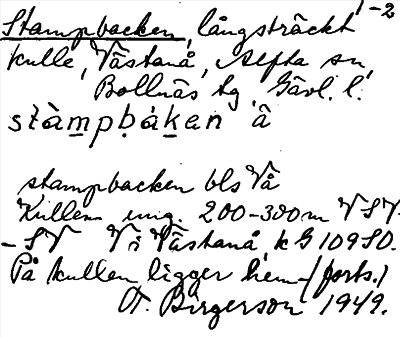 1-2
Stampbacken, långsträckt
kulle, Västanå, Alfta sn,
Bollnäs tg, Gävl. l.
stàmpbáken â
stampbacken bls Vå
Kullen ung. 200-300 m VSV
- SV Vi Västanå, k G 109 SO.
På kullen ligger hem- (forts.)
O. Birgerson 1949.